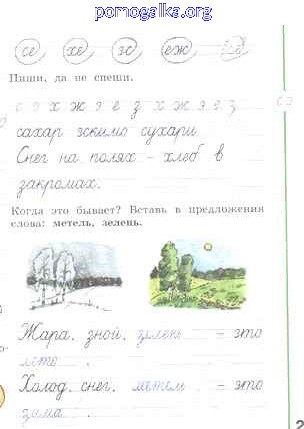 pomogalka.org
се хе зе еж
Пиши, да не спеши.
с э х ж э е з х ж э е з
сахар эскимо сухари
Снег на полях – хлеб в
закромах.
Когда это бывает? Вставь в предложения
слова: метель, зелень.
Жара, зной, зелень – это
лето.
Холод, снег, метель – это
зима.
2